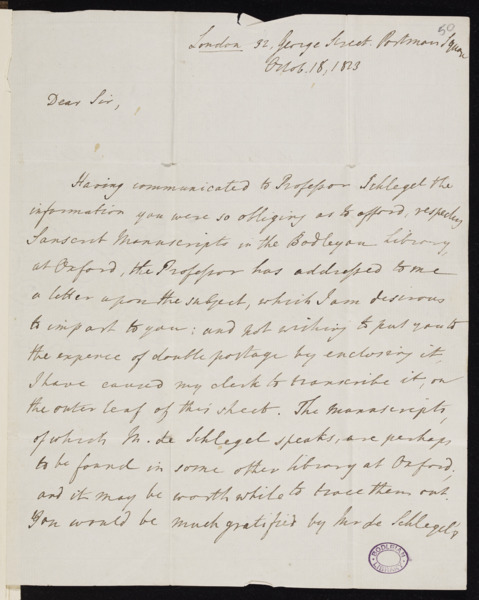 50
London 32, George Street. Portman Square
Octob. 18, 1823
Dear Sir,
Having communicated to Professor Schlegel the
information you were so obliging as to afford, respecting
Sanscrit Manuscripts in the Bodleyan Library,
at Oxford, the Professor has addressed to me
a letter upon the subject, which I am desirous
to impart to you: and not wishing to put you to
the expence of double postage by enclosing it,
I have caused my clerk to transcribe it, on
the outer leaf of this sheet. The manuscripts,
of which M. de Schlegel speaks, are perhaps
to be found in some other library at Oxford;
and it may be worth while to trace them out.
You would be much gratified by Mr de Schlegel's
BODLEIAN
LIBRARY